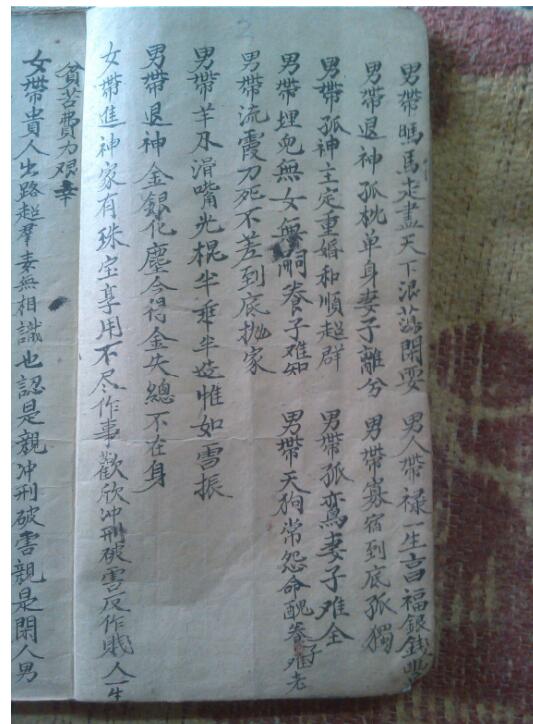 男帶瞗馬走盡天下浪蕩閑耍 男人帶禄一生富福銀錢
男帶退神孤枕单身妻子離兮 男帶寡宿到底孤獨
男帶孤神主定重婚和順超群 男帶孤鸞妻子难全
男帶埋兜無女無嗣養子难知 男帶天狗常怨命醜養子难老
男帶流霞刀死不差到底抛家
男帶羊刃滑嘴光棍半乖半惟如雪振
男帶退神金銀化塵合得金失總不在身
女帶進神家有珠宝享用不尽作事歡欣冲刑破害反作賎人一生
貧苦費力艰辛
女帶貴人出路超羣素無相識也認是親冲刑破害親是閑人男